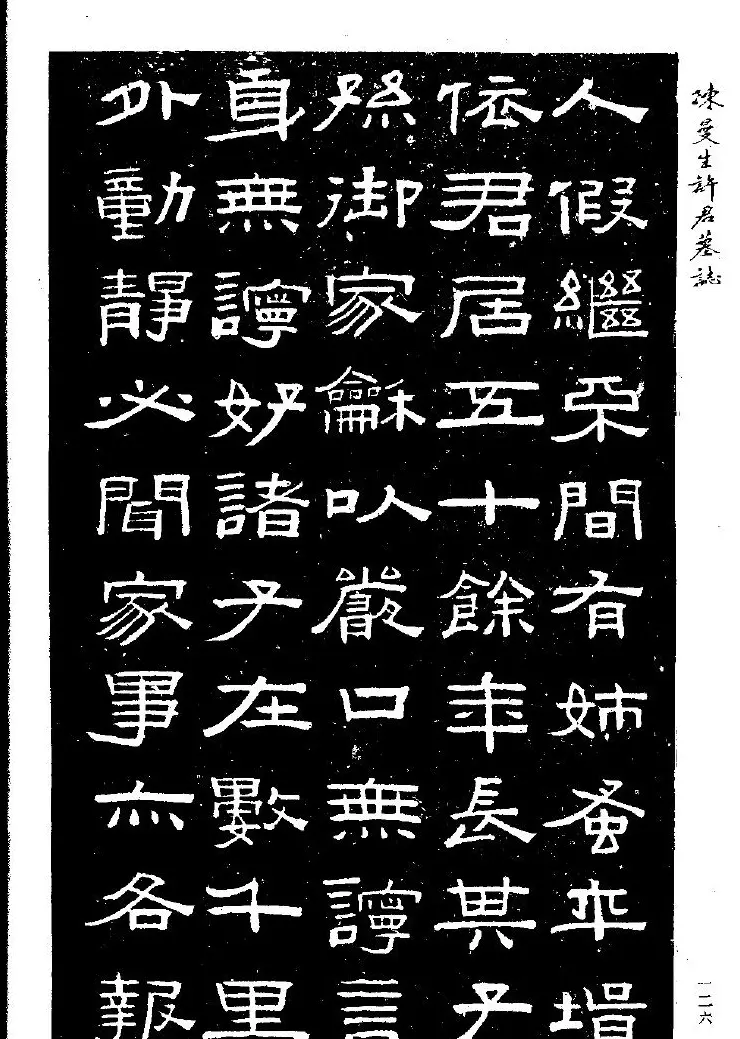 陳曼生許君墓誌
人假繼間有姊蚤卒壻
依君居五十餘年長其子
孫御家龢㕥嚴口無謣言
身無謣好諸子在數千里
外動靜必聞家事亦各報
一二六